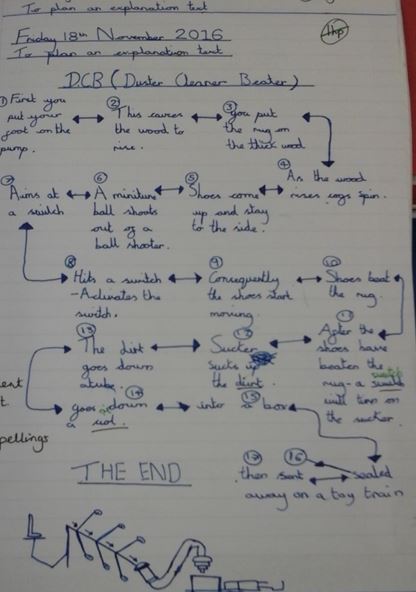 To plan an explanation text
Friday 18th November 2016
1hp
To plan an explanation text
D.C.B (Duster Cleaner Beater)
① First you
put your
foot on the
pump.
② This causes
the wood to
rise.
③ you put
the rug on
the thick wood
④ As the wood
rises cogs spin.
⑤ Shoes come
up and stay
to the side.
⑥ A miniture
ball shoots
out of a
ball shooter.
⑦ Aims at
a switch
⑧ Hits a switch
-Activates the
switch.
⑨ Consequently
the shoes start
moving.
⑩ Shoes beat
the rug.
⑪ After the
shoes have
beaten the
rug - a switch
will turn on
the sucker.
⑫ Sucker
sucks up
the dirt.
⑬ The dirt
goes down
a tube.
⑭ goes down
a
⑮ into a box
⑯ sealed
⑰ then sent
away on a toy train
ent
t.
pellings
THE END